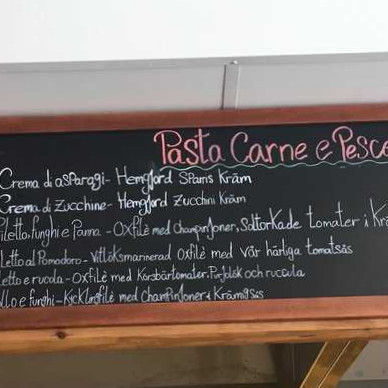 Pasta Carne e Pesce
Crema di asparagi - Hemgjord Sparris Kräm
Crema di Zucchine - Hemgjord Zucchini Kräm
iletto, funghi e Panna - Oxfilè med champinjoner, Soltorkade tomater i Krä
letto al Pomodoro - Vitlöksmarinerad Oxfilè med vår härliga tomatsås
letto e rucola - Oxfilè med Körsbärtomater, Purjolök och ruccula
llo e funghi - Kycklingfilè med Champinjoner i Krämig sås